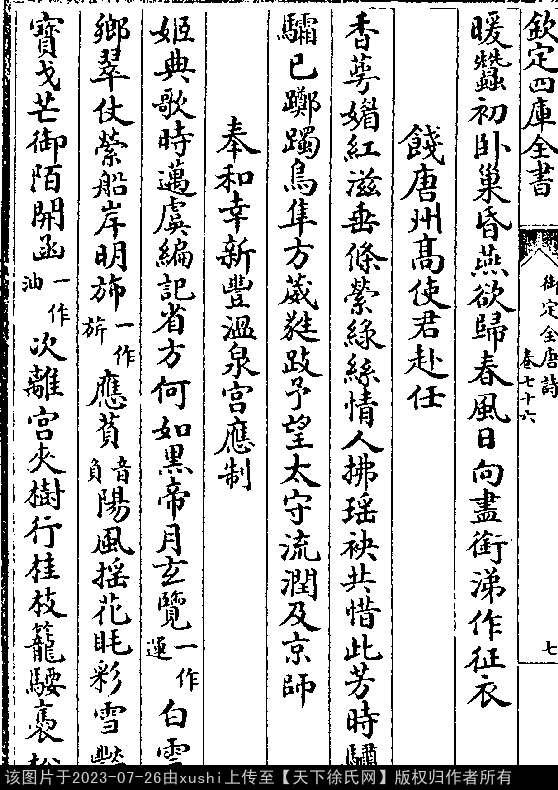 欽定四庫全書
御定全唐詩
卷七十六
七
暖蠶初臥巢昏燕欲歸春風日向盡銜涕作征衣
餞唐州高使君赴任
香萼媚紅滋垂條縈綠絲情人拂瑤袂共惜此芳時驌
驦已躑躅鳥隼方葳蕤跂予望太守流潤及京師
奉和幸新豐温泉宫應制
姬典歌時邁虞編記省方何如黒帝月玄覽一作運白雲
鄉翠仗縈船岸明斾一作旂應萯音負陽風揺花眊彩雪豔
寶戈芒御陌開函一作油次離宫夾樹行桂枝籠騕褭松
该图片于2023-07-26由xushi上传至【天下徐氏网】版权归作者所有